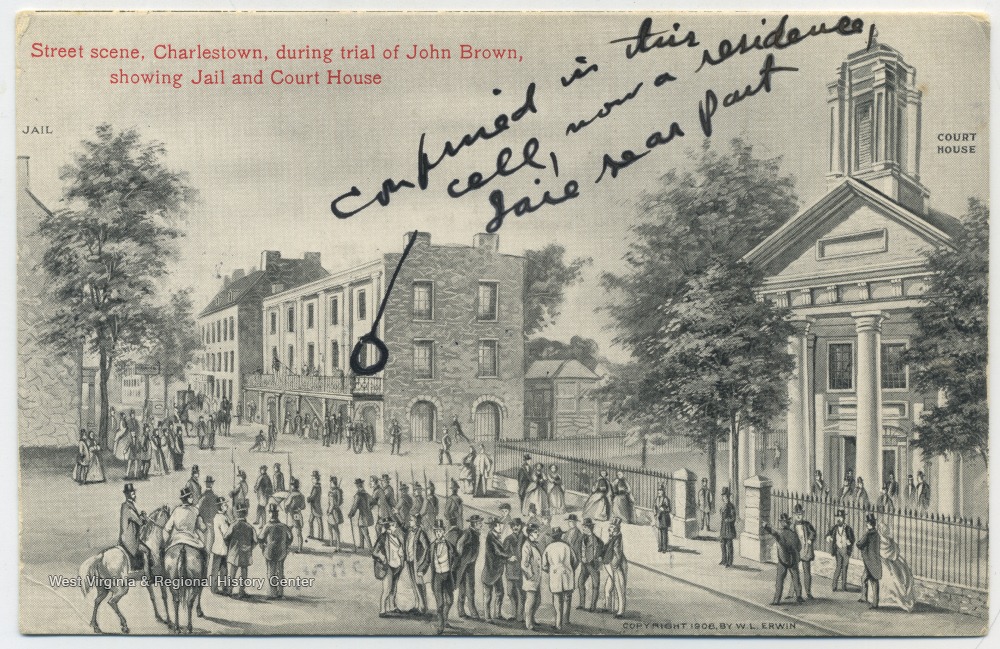 Street scene, Charlestown, during trial of John Brown,
showing Jail and Court House
confined in this
cell, now a residence,
Jail rear part
JAIL
COURT
HOUSE
West Virginia & Regional History Center
COPYRIGHT 1906, BY W. L. ERWIN